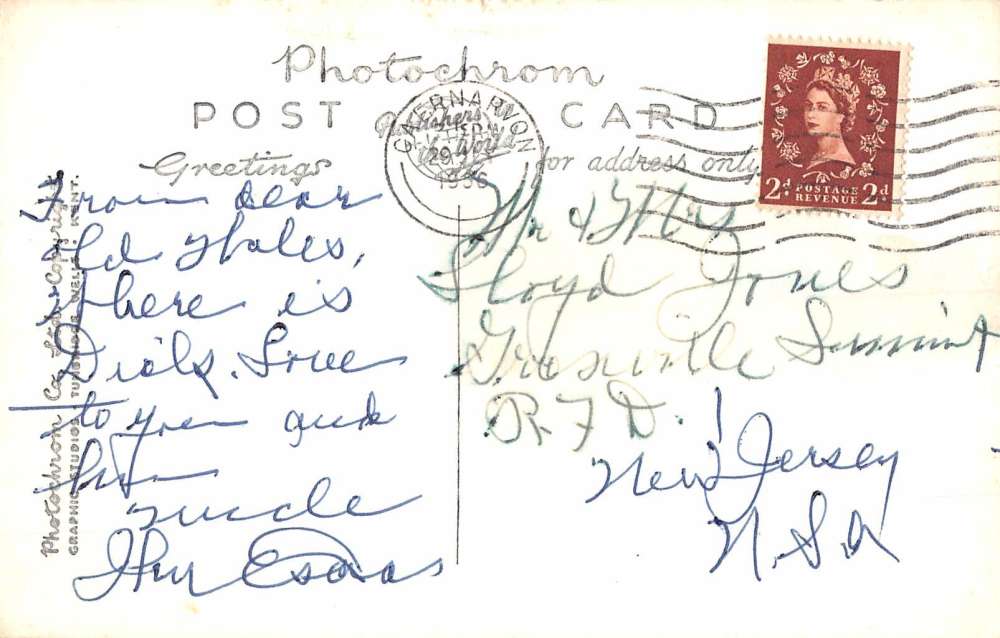 Photochrom
POST CARD
Publishers
World
CAERNARVON
29
1956
2d POSTAGE REVENUE 2d
Greetings
for address only.
From dear
Old Wales,
where is
Love
to you and
him
uncle
Mr & Mrs
Lloyd Jones
Summit
R.F.D.
New Jersey
U.S.A
Photochrom Co. Ltd. Copyright
GRAPHIC STUDIOS, TUNBRIDGE WELLS, KENT.